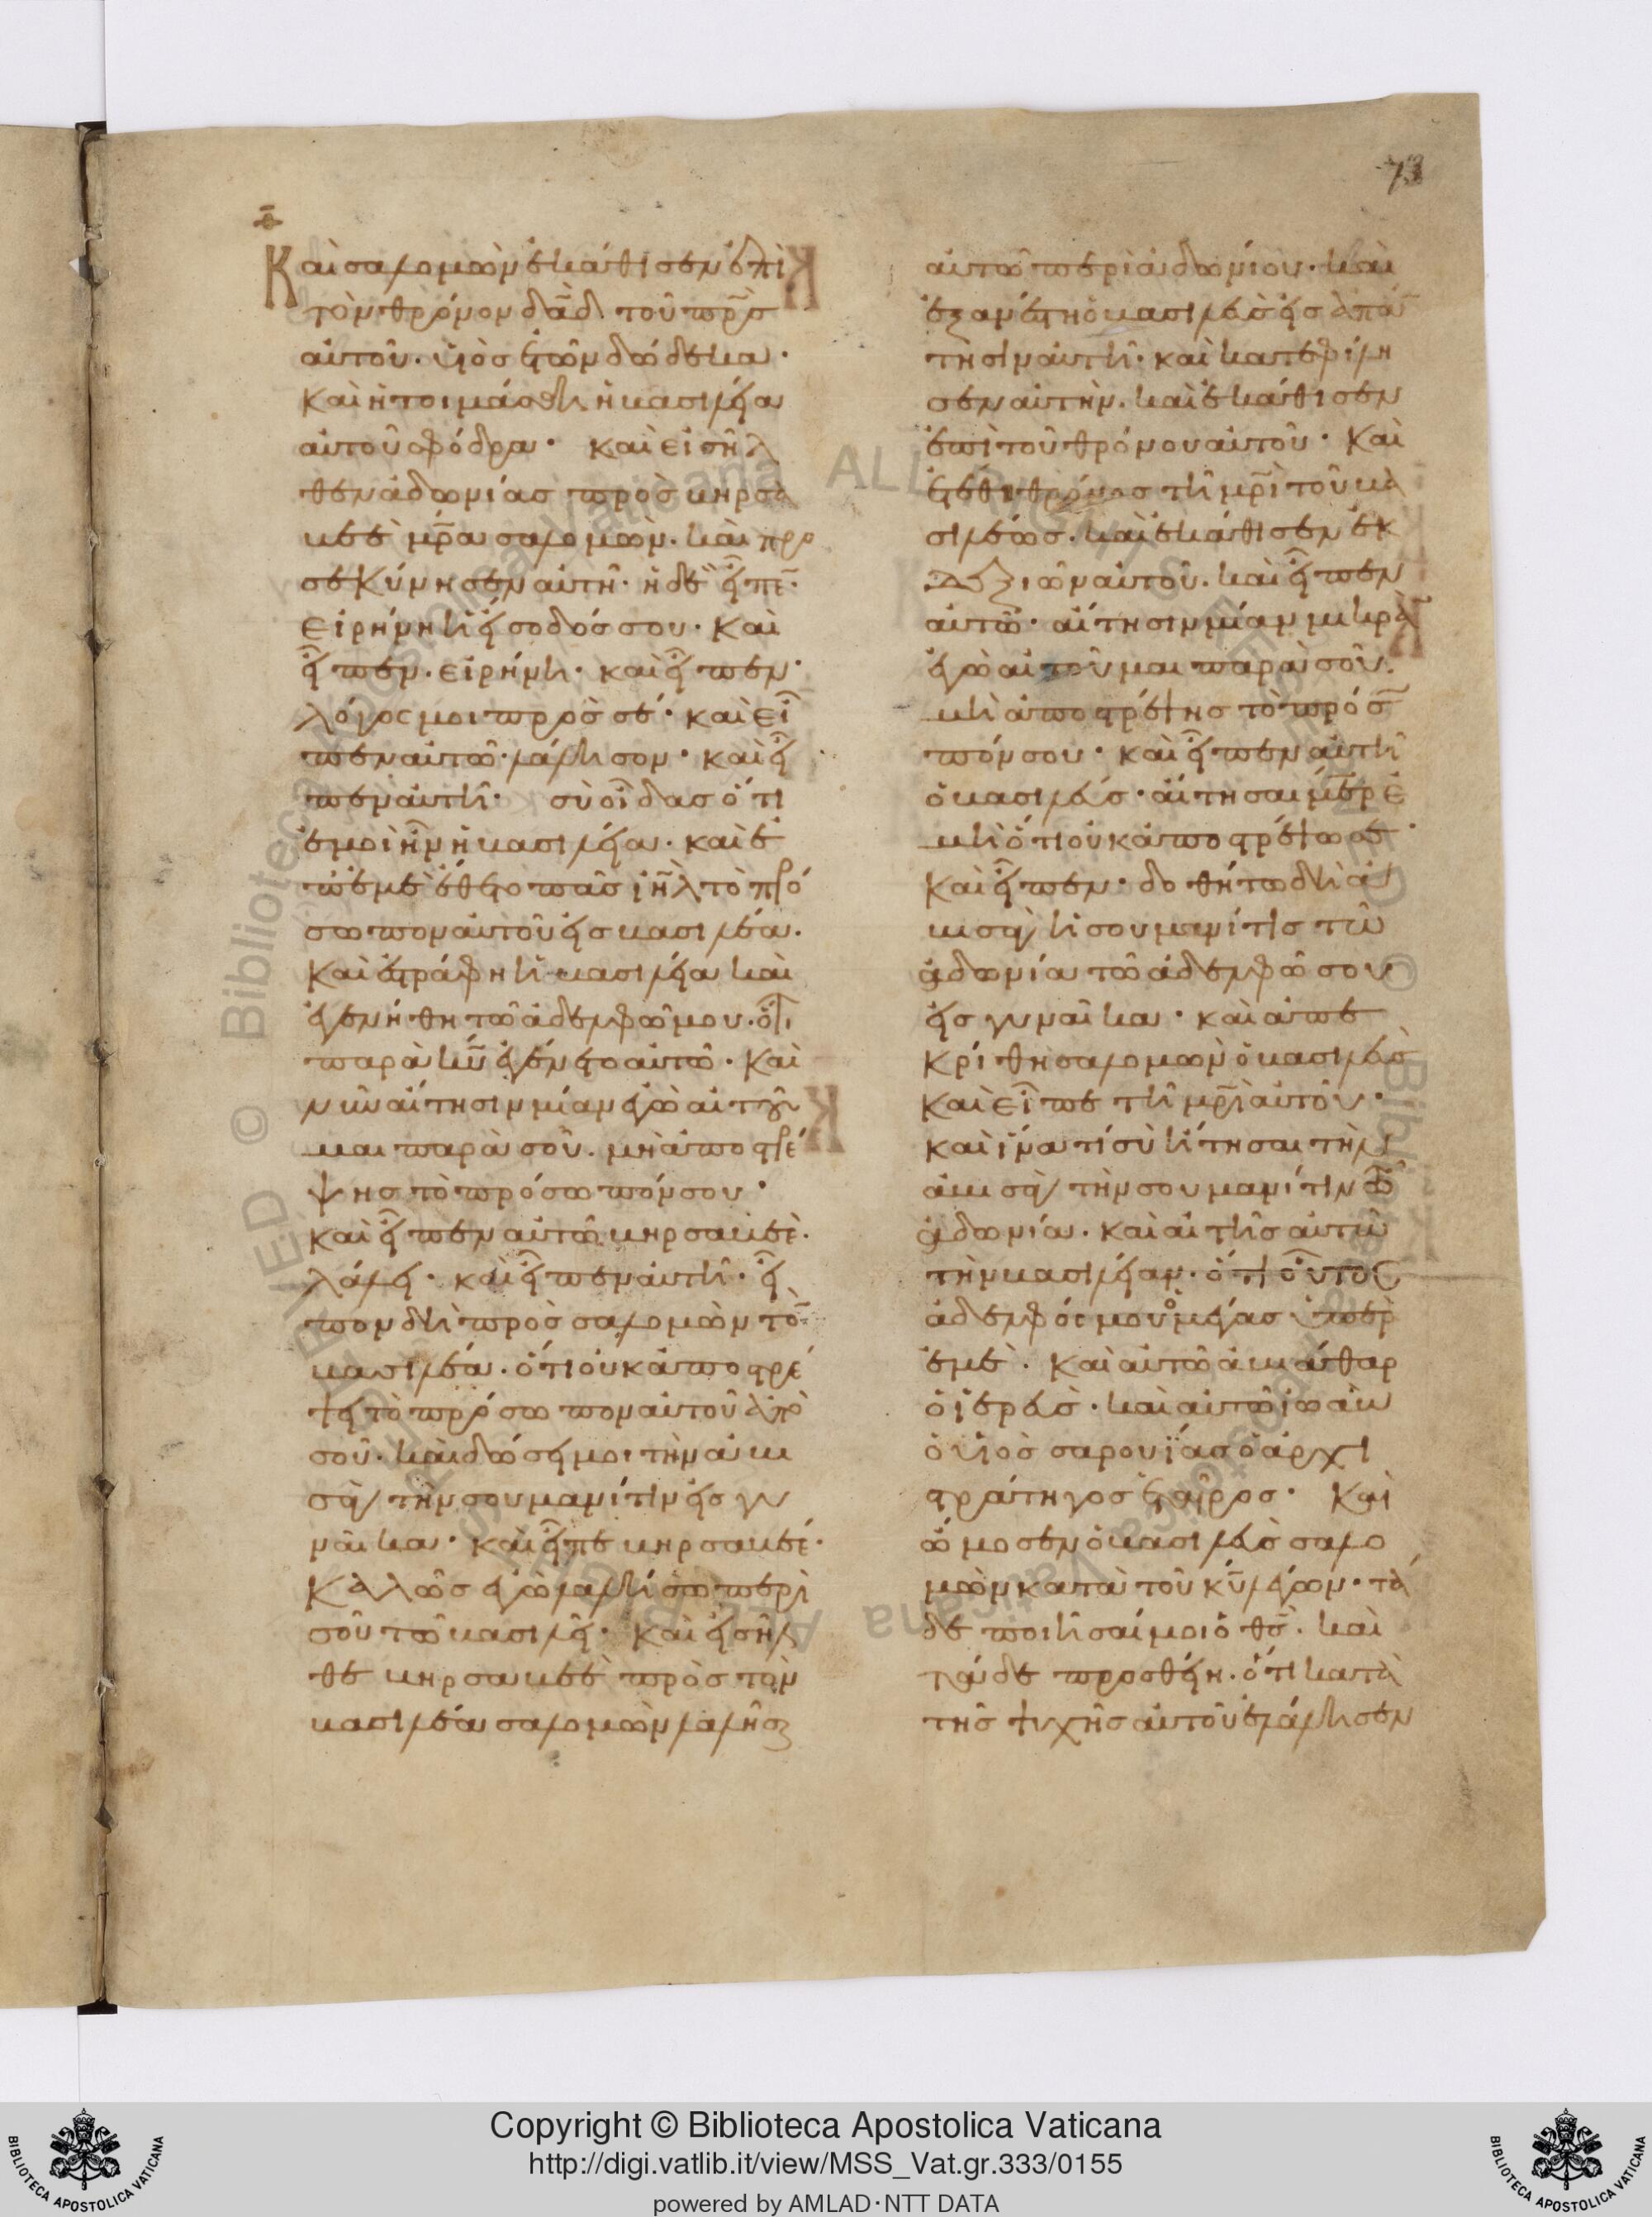 73
Καὶ σαλομὼν ἐκάθισεν ἐπὶ
τὸν θρόνον δᾱδ τοῦ πρ̅σ
αὐτοῦ. υἱὸσ ἐτῶν δώδεκα·
Καὶ ἡτοιμάσθη ἡ βασιλεία
αὐτοῦ σφόδρα· Καὶ εἰσῆλ
θεν ἀδωνίασ πρὸσ βηρσα
βεὲ μρ̅α σαλομών. καὶ προ
σεκύνησεν αὐτῆ· ἡ δὲ εἶπε̅·
Εἰρήνη ἡ εἴσοδόσ σου· Καὶ
εἶπεν. εἰρήνη· καὶ εἶπεν·
λόγος μοι πρὸσ σέ· καὶ εἶ
πεν αὐτῶ· λάλησον· καὶ εἶ
πεν αὐτῆ· σὺ οἶδασ ὅτι
ἐμοὶ ἦν ἡ βασιλεία. καὶ ἐ
π' ἐμὲ ἔθετο πᾶσ ιη̅λ τὸ πρό
σωπον αὐτοῦ εἰσ βασιλέα.
Καὶ ἐστράφη ἡ βασιλεία καὶ
ἐγενήθη τῶ ἀδελφῶ μου. ὅτι
παρὰ κυ̅ ἐγένετο αὐτῶ. Καὶ
νῦν αἴτησιν μίαν ἐγὼ αἰτοῦ
μαι παρὰ σοῦ. μὴ ἀποστρέ
ψησ τὸ πρόσωπόν σου·
καὶ εἶπεν αὐτῶ βηρσαβεὲ.
λάλει· καὶ εἶπεν αὐτῆ· εἶ
πον δὴ πρὸσ σαλομὼν το̅
βασιλέα. ὅτι οὐκ ἀποστρέ
ψει τὸ πρόσωπον αὐτοῦ ἀπὸ
σοῦ. καὶ δώσει μοι τὴν ἀβι
σὰγ τὴν σουμανίτιν εἰσ γυ
ναῖκα· καὶ εἶπε βηρσαβεέ·
Καλῶσ ἐγὼ λαλήσω περὶ
σοῦ τῶ βασιλεῖ· Καὶ εἰσῆλ
θε βηρσαβεὲ πρὸσ τὸν
βασιλέα σαλομὼν λαλῆσαι
αὐτῶ περὶ ἀδωνίου. καὶ
ἐξανέστη ὁ βασιλεὺσ εἰσ ἀπά̅
τησιν αὐτῆ· καὶ κατεφίλη
σεν αὐτήν. καὶ ἐκάθισεν
ἐπὶ τοῦ θρόνου αὐτοῦ· Καὶ
ἐτέθη θρόνοσ τῆ μρ̅ι τοῦ βα
σιλέωσ. καὶ ἐκάθισεν ἐκ
δεξιῶν αὐτοῦ. καὶ εἶπεν
αὐτῶ· αἴτησιν μίαν μικρὰ̅
ἐγὼ αἰτοῦμαι παρὰ σοῦ.
μὴ ἀποστρέψησ τὸ πρόσ
πόν σου· καὶ εἶπεν αὐτῆ
ὁ βασιλεύσ· αἴτησαι μη̅ρ ἐ
μὴ ὅτι οὐκ ἀποστρέψω σε·
Καὶ εἶπεν· δοθήτω δὴ ἀ
βισὰγ ἡ σουμανίτισ τῶ
ἀδωνία τῶ ἀδελφῶ σου
εἰσ γυναῖκα· καὶ ἀπε
κρίθη σαλομὼν ὁ βασιλεὺσ
καὶ εἶπε τῆ μρ̅ι αὐτοῦ·
καὶ ἱνατί σὺ ἤτησαι τὴν
ἀβισὰγ τὴν σουμανίτιν τῶ
ἀδωνία. καὶ αἰτῆσ αὐτῶ
τὴν βασιλείαν. ὅτι οὗτοσ
ἀδελφός μου ὁ μέγασ ὑπὲρ
ἐμὲ. Καὶ αὐτῶ ἀβιάθαρ
ὁ ἱερεὺσ. καὶ αὐτῶ ἰωὰβ
ὁ υἱὸσ σαρουΐασ ὁ ἀρχι
στράτηγοσ ἑταῖροσ· Καὶ
ὤμοσεν ὁ βασιλεὺσ σαλο
μὼν κατὰ τοῦ κυ̅ λέγων· τά
δε ποιήσαί μοι ὁ θσ̅. καὶ
τάδε προσθείη. ὅτι κατὰ
τῆσ ψυχῆσ αὐτοῦ ἐλάλησεν
Copyright © Biblioteca Apostolica Vaticana
http://digi.vatlib.it/view/MSS_Vat.gr.333/0155
powered by AMLAD·NTT DATA